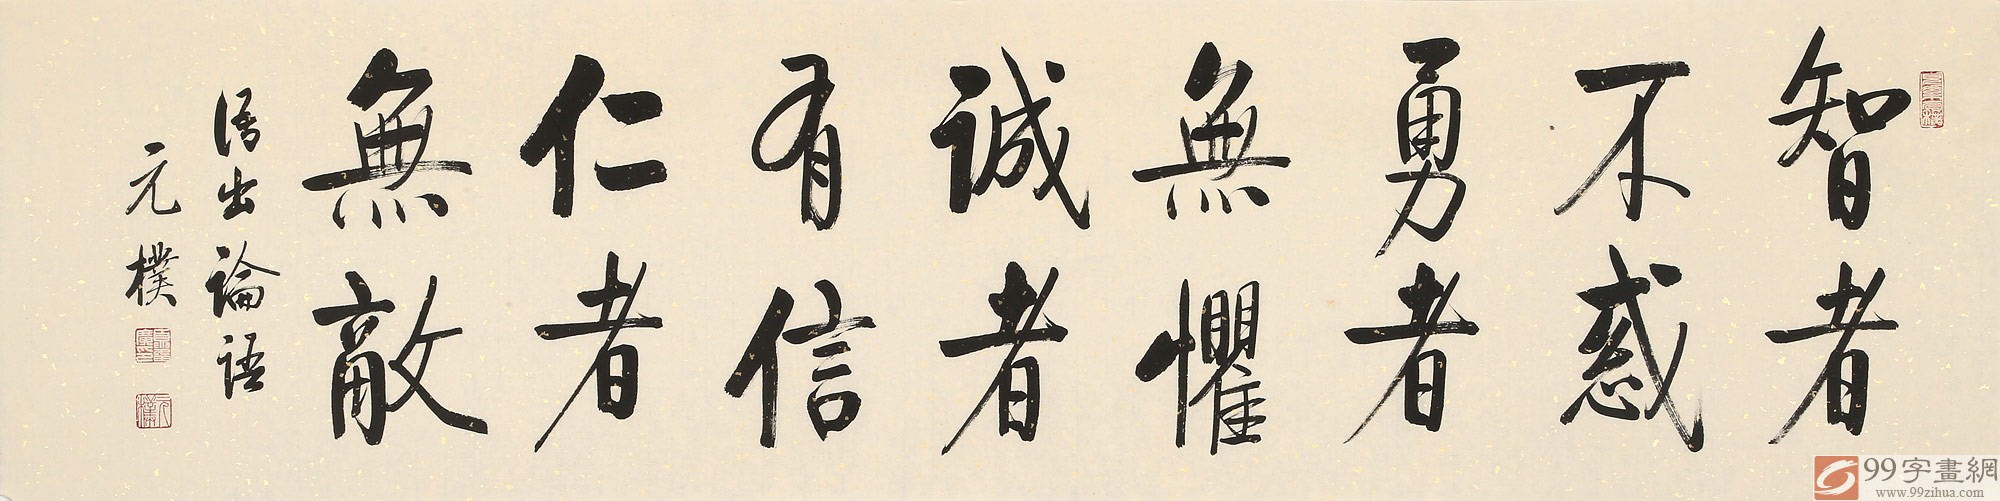 智者
不惑
勇者
無懼
誠者
有信
仁者
無敵
語出論語
元樸
99字畫網
www.99zihua.com